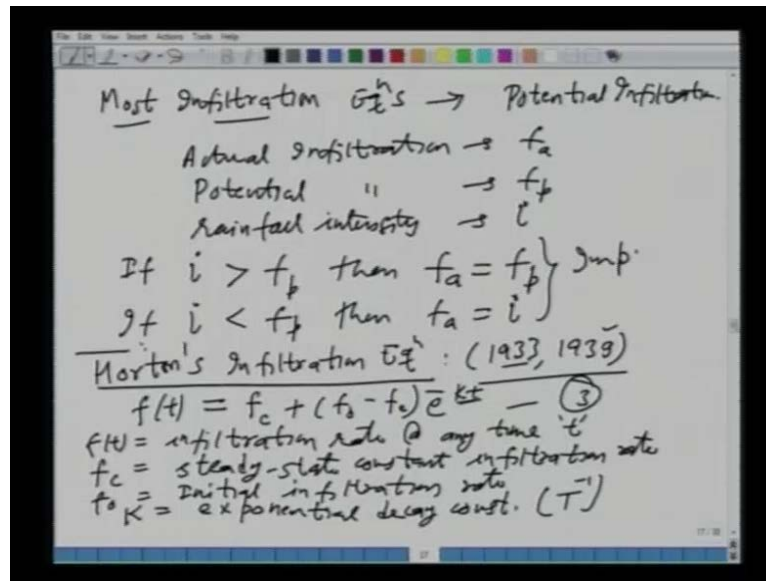 File Edit View Insert Actions Tools Help
Most Infiltration Eqⁿs → Potential Infiltration.
Actual Infiltration → fa
Potential " → fp
rainfall intensity → i
If i > fp then fa = fp } Imp.
If i < fp then fa = i
Horton's Infiltration Eqⁿ : (1933, 1939)
f(t) = fc + (f0 - fc) e^-kt — ③
f(t) = infiltration rate @ any time 't'
fc = steady-state constant infiltration rate
f0 = Initial infiltration rate
K = exponential decay const. (T⁻¹)
17